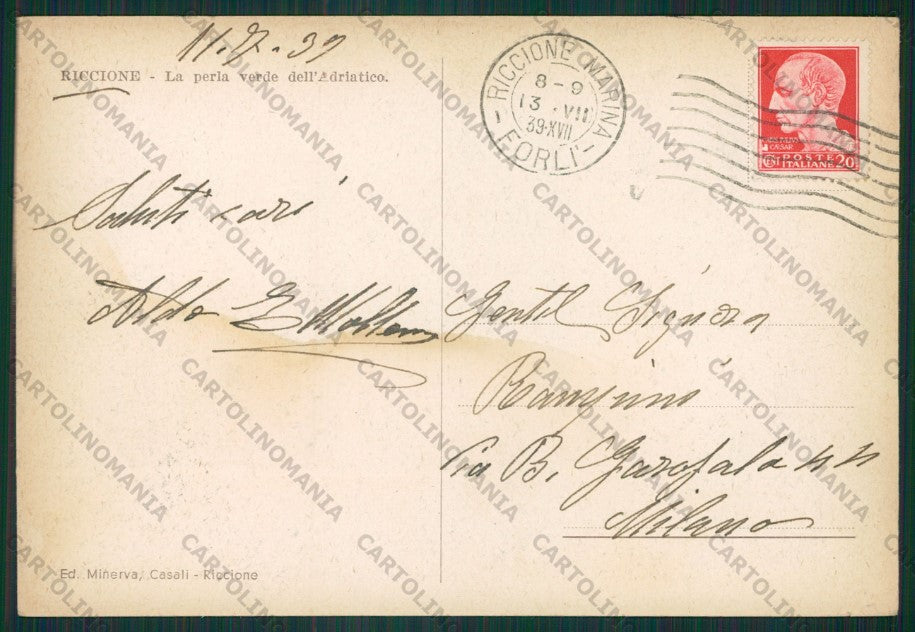 11.7.39
RICCIONE - La perla verde dell'Adriatico.
RICCIONE MARINA
8-9
13.VII
39·XVII
- FORLI' -
CAESAR
POSTE
ITALIANE 20
Saluti cari
Aldo
Gentil Signora
Via B. Garofalo
Milano
Ed. Minerva, Casali - Riccione
CARTOLINOMANIA